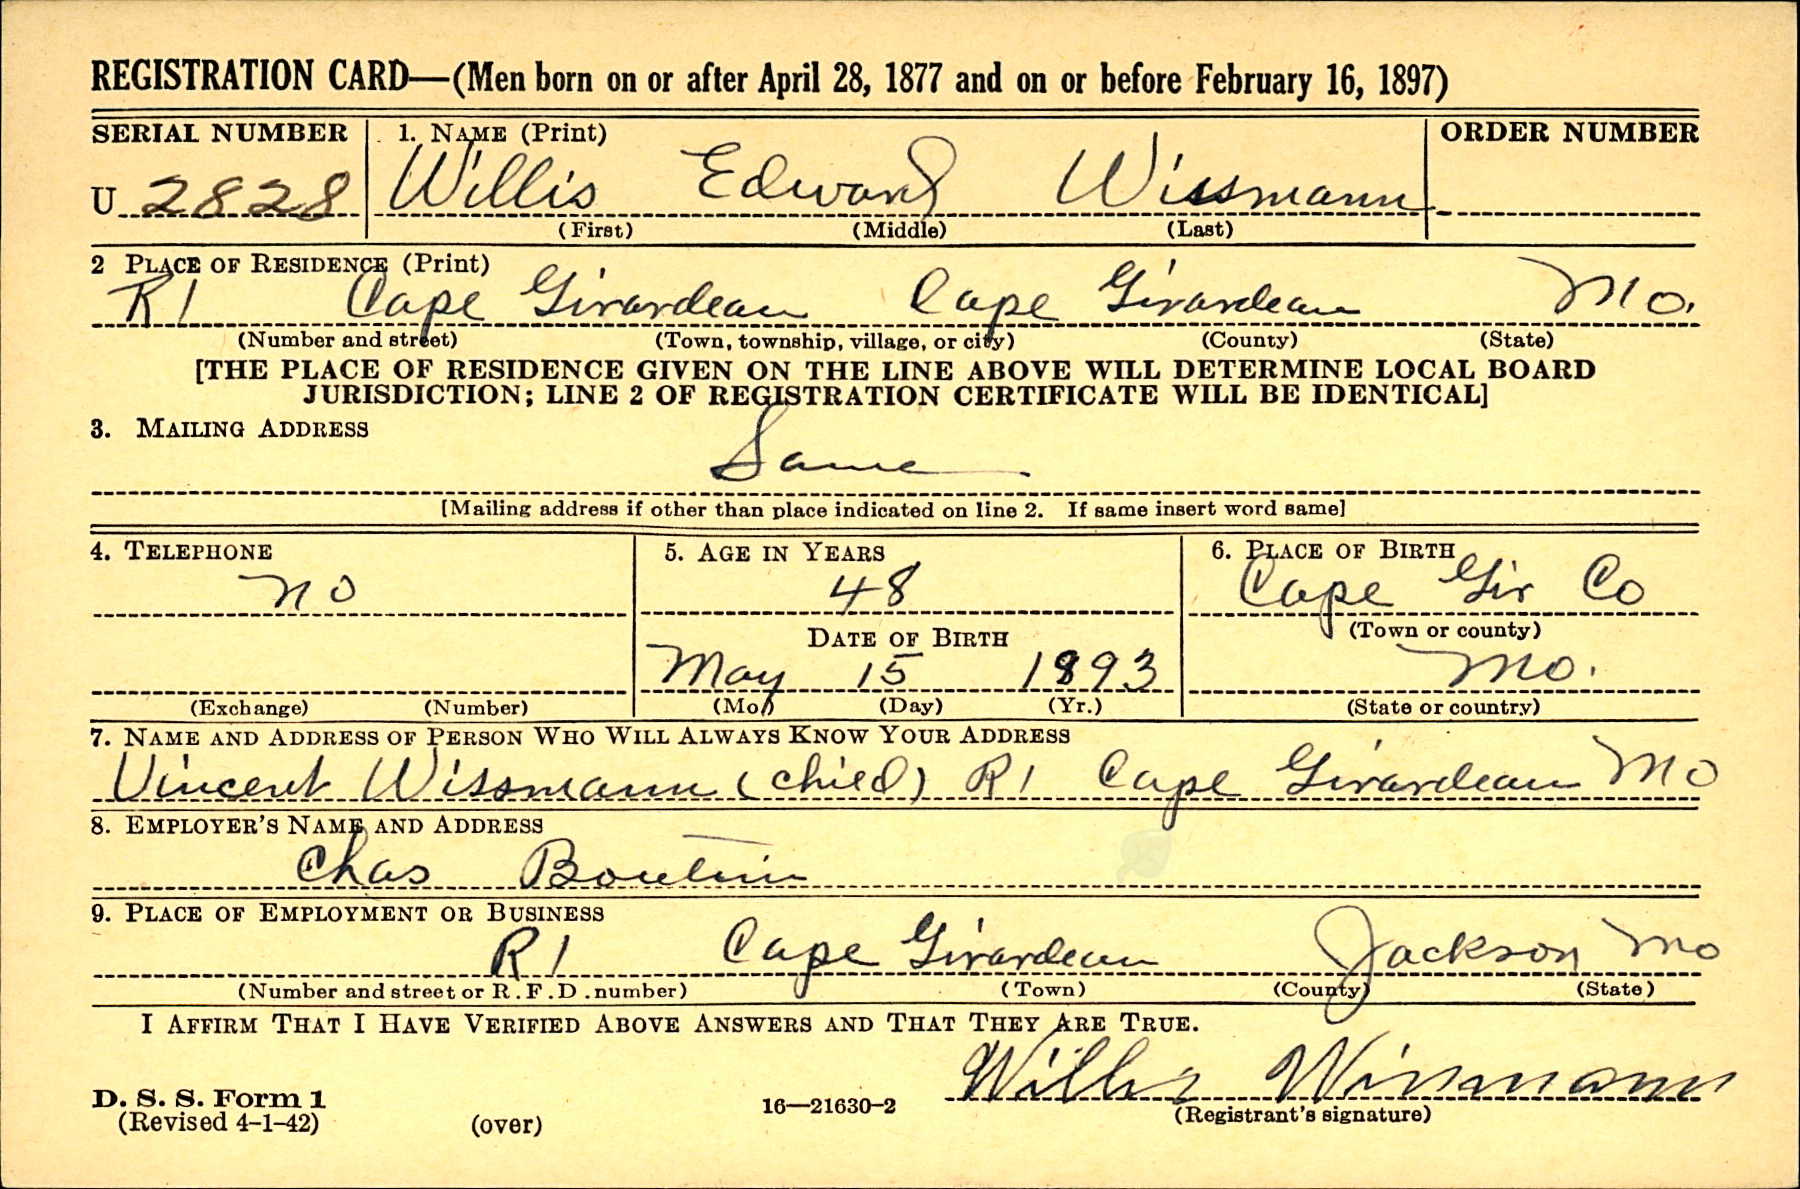 REGISTRATION CARD—(Men born on or after April 28, 1877 and on or before February 16, 1897)
SERIAL NUMBER 1. NAME (Print) ORDER NUMBER
U 2828 Willis Edward Wissmann
(First) (Middle) (Last)
2 PLACE OF RESIDENCE (Print)
R 1 Cape Girardeau Cape Girardeau Mo.
(Number and street) (Town, township, village, or city) (County) (State)
[THE PLACE OF RESIDENCE GIVEN ON THE LINE ABOVE WILL DETERMINE LOCAL BOARD
JURISDICTION; LINE 2 OF REGISTRATION CERTIFICATE WILL BE IDENTICAL]
3. MAILING ADDRESS
Same
[Mailing address if other than place indicated on line 2. If same insert word same]
4. TELEPHONE 5. AGE IN YEARS 6. PLACE OF BIRTH
no 48 Cape Gir Co
DATE OF BIRTH (Town or county)
May 15 1893 Mo.
(Exchange) (Number) (Mo.) (Day) (Yr.) (State or country)
7. NAME AND ADDRESS OF PERSON WHO WILL ALWAYS KNOW YOUR ADDRESS
Vincent Wissmann (child) R 1 Cape Girardeau Mo
8. EMPLOYER'S NAME AND ADDRESS
Chas Boutin
9. PLACE OF EMPLOYMENT OR BUSINESS
R 1 Cape Girardeau Jackson Mo
(Number and street or R.F.D. number) (Town) (County) (State)
I AFFIRM THAT I HAVE VERIFIED ABOVE ANSWERS AND THAT THEY ARE TRUE.
Willis Wissmann
D. S. S. Form 1
(Revised 4-1-42) (over) 16—21630-2 (Registrant's signature)